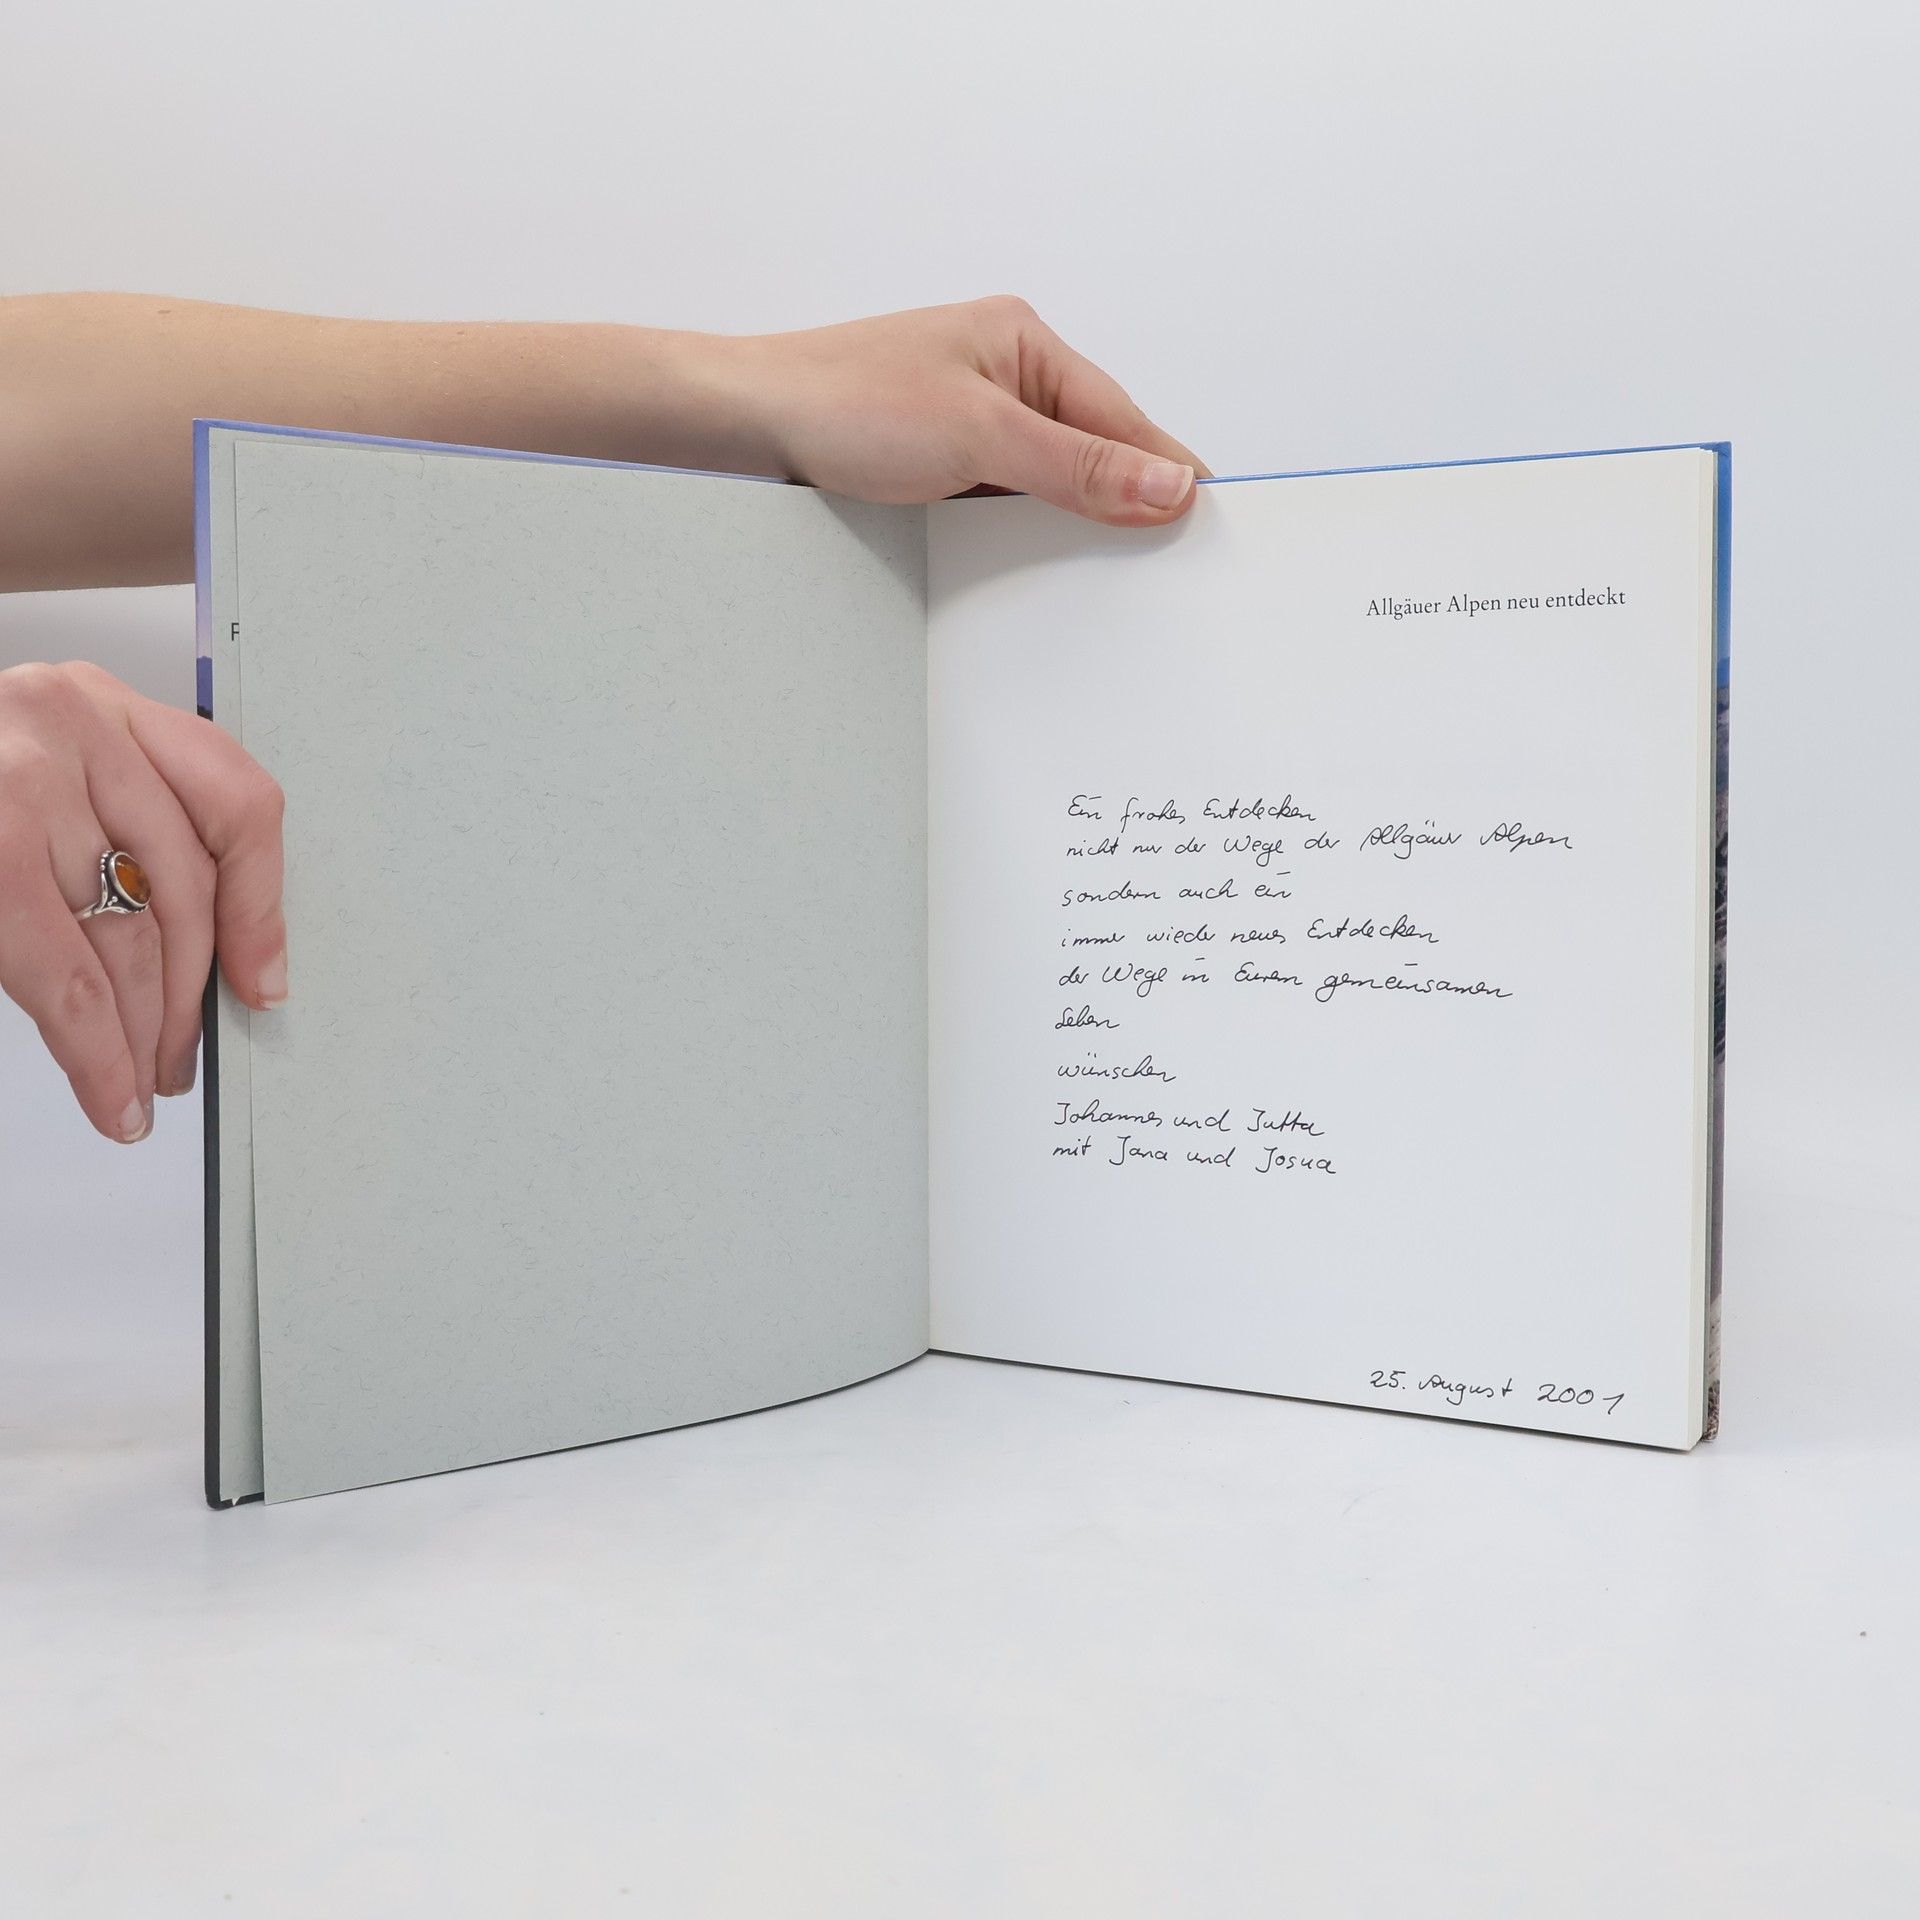 F
Allgäuer Alpen neu entdeckt
Ein frohes Entdecken
nicht nur der Wege der Allgäuer Alpen
sondern auch ein
immer wieder neues Entdecken
der Wege in Eurem gemeinsamen
Leben
wünschen
Johannes und Jutta
mit Jana und Josua
25. August 2001